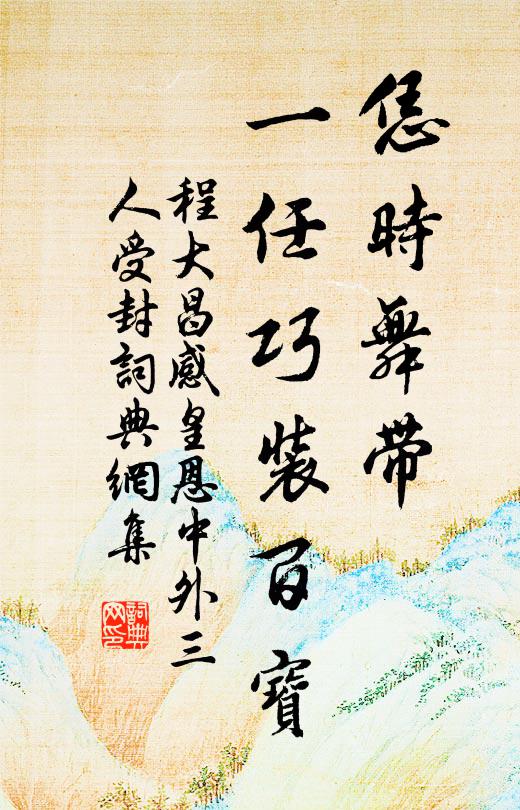 恁時舞帶
一任巧裝百寶
程大昌感皇恩中外三
人受封詞典網集
詞典
网印